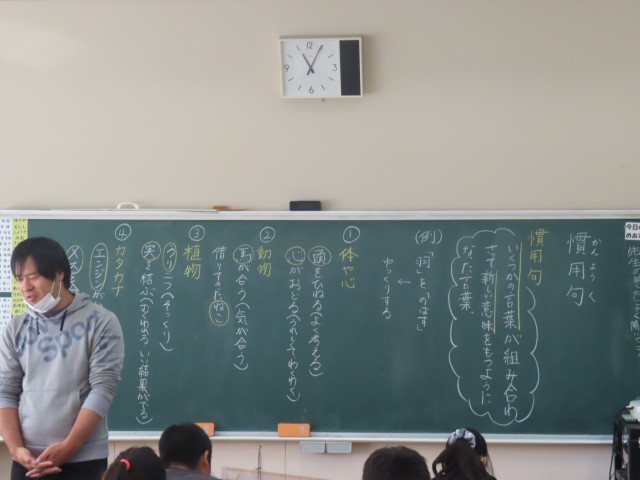 慣用句
かんようく
慣用句
いくつかの言葉が組み合わ
さって新しい意味をもつように
なった言葉。
(例) 羽をのばす
↓
ゆっくりする
① 体や心
頭をひねる(よく考える)
心がおどる(うれしくてわくわく)
② 動物
馬が合う(気が合う)
借りてきたねこ
③ 植物
うり二つ(そっくり)
実を結ぶ(むくわれる、いい結果がでる)
④ カタカナ
エンジンが
12
3
6
9